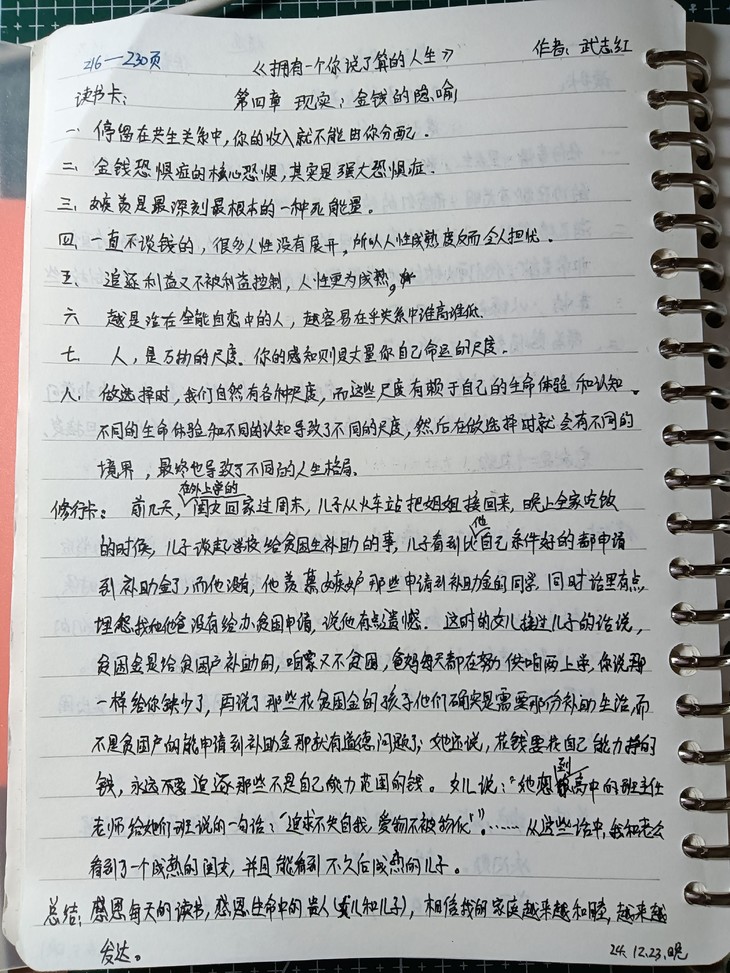 216—230页 《拥有一个你说了算的人生》 作者：武志红
读书卡： 第四章 现实：金钱的隐喻
一、停留在共生关系中，你的收入就不能由你分配。
二、金钱恐惧症的核心恐惧，其实是强大恐惧症。
三、嫉羡是最深刻最根本的一种死能量。
四、一直不谈钱的，很多人性没有展开，所以人性成熟度反而令人担忧。
五、追逐利益又不被利益控制，人性更为成熟。
六 越是活在全能自恋中的人，越容易在乎关系中谁高谁低．
七、人，是万物的尺度。你的感知则是丈量你自己命运的尺度．
八．做选择时，我们自然有各种尺度，而这些尺度有赖于自己的生命体验和认知。
不同的生命体验和不同的认知导致了不同的尺度，然后在做选择时就会有不同的
境界，最终也导致了不同的人生格局、
修行卡：前几天，在外上学的闺女回家过周末，儿子从火车站把姐姐接回来，晚上全家吃饭
的时候，儿子谈起学校给贫困生补助的事，儿子看到比他自己条件好的都申请
到补助金了，而他没有，他羡慕嫉妒那些申请到补助金的同学，同时话里有点
埋怨我和他爸没有给办贫困申请，说他有点遗憾．这时的女儿接过儿子的话说，
贫困金是给贫困户补助的，咱家又不贫困，爸妈每天都在努供咱两上学，你说那
一样给你缺少了，再说了那些花贫困金的孩子他们确实是需要那份补助生活，而
不是贫困户的能申请到补助金那就有道德问题了；她还说，花钱要花自己能力挣的
钱，永远不要追逐那些不是自己能力范围的钱。女儿说："她想到高中的班主任
老师给她们班说的一句话："追求不失自我，爱物不被物化"。……从这些话中，我和老公
看到了一个成熟的闺女，并且能看到不久后成熟的儿子。
总结：感恩每天的读书，感恩生命中的贵人（女儿和儿子），相信我的家庭越来越和睦，越来越
发达。 24.12.23.晚